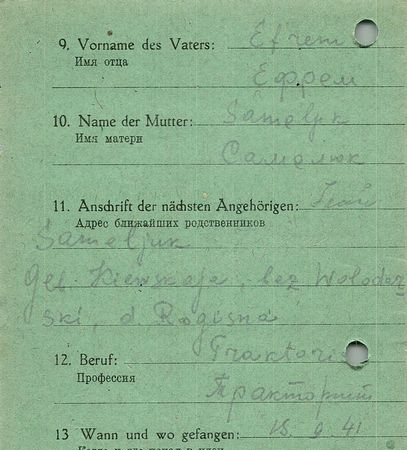 9. Vorname des Vaters: Efrem
Имя отца
Ефрем
10. Name der Mutter: Sameljuk
Имя матери
Самелюк
11. Anschrift der nächsten Angehörigen:
Адрес ближайших родственников
Sameljuk
Geb Kiewskaja, bez Wolodar
ski, d Rogisna
12. Beruf: Traktoris
Профессия
Тракторист
13 Wann und wo gefangen: 15. 9. 41